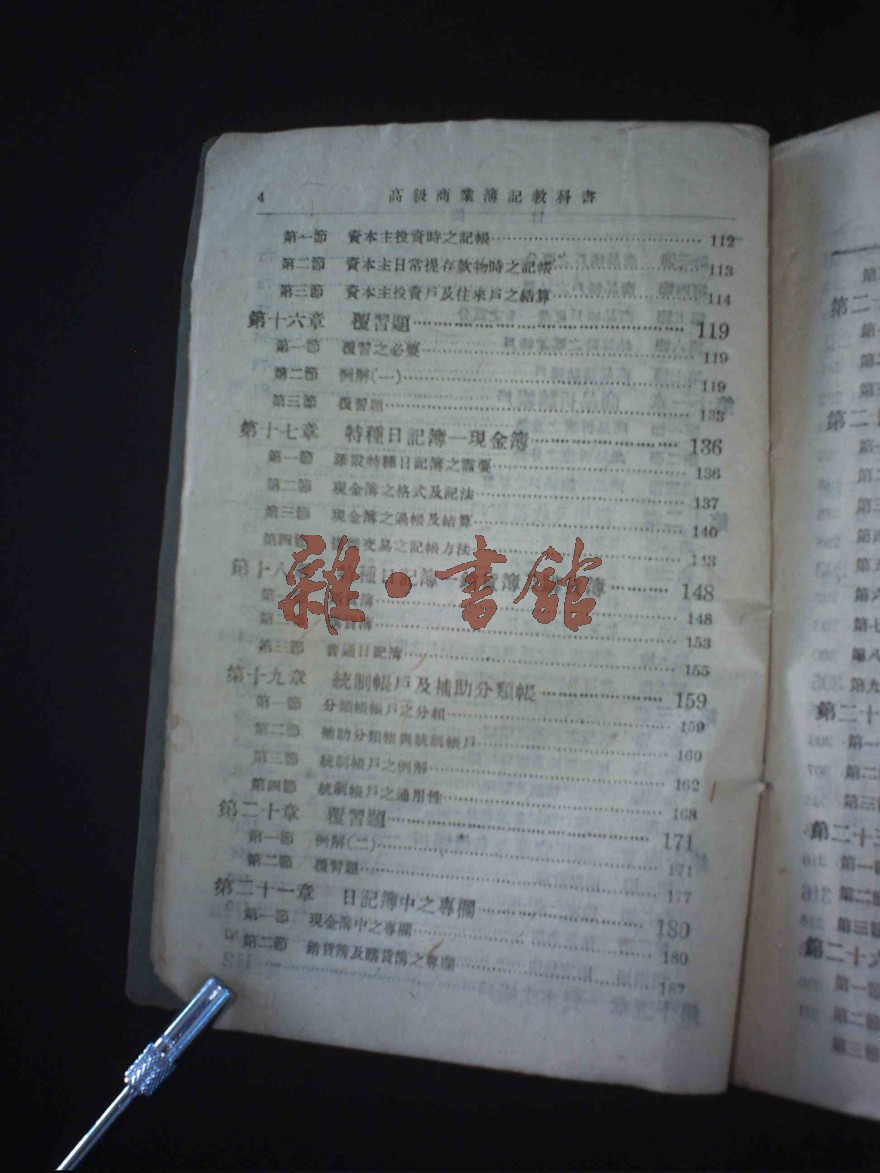 4 高級商業簿記教科書
第一節 資本主投資時之記帳 112
第二節 資本主日常提存款物時之記帳 113
第三節 資本主投資戶及往來戶之結算 114
第十六章 覆習題 119
第一節 覆習之必要 119
第二節 例解(一) 119
第三節 覆習題 133
第十七章 特種日記簿—現金簿 136
第一節 添設特種日記簿之需要 136
第二節 現金簿之格式及記法 137
第三節 現金簿之過帳及結算 140
第四節 交易之記帳方法 143
第十八 種日記簿— 簿 148
雜·書館
第一 簿 148
第二 貨簿 153
第三節 普通日記簿 155
第十九章 統制帳戶及補助分類帳 159
第一節 分類帳帳戶之分組 159
第二節 補助分類帳與統制帳戶 160
第三節 統制帳戶之例解 162
第四節 統制帳戶之通用性 168
第二十章 覆習題 171
第一節 例解(二) 171
第二節 覆習題 177
第二十一章 日記簿中之專欄 180
第一節 現金簿中之專欄 180
第二節 銷貨簿及購貨簿之專欄 187
第二十
第一
第二
第三
第二十
第一
第二
第三
第四
第五
第六
第七
第八
第九
第二十
第一
第二
第三
第二十三
第一
第二
第三
第二十六
第一
第二
第三